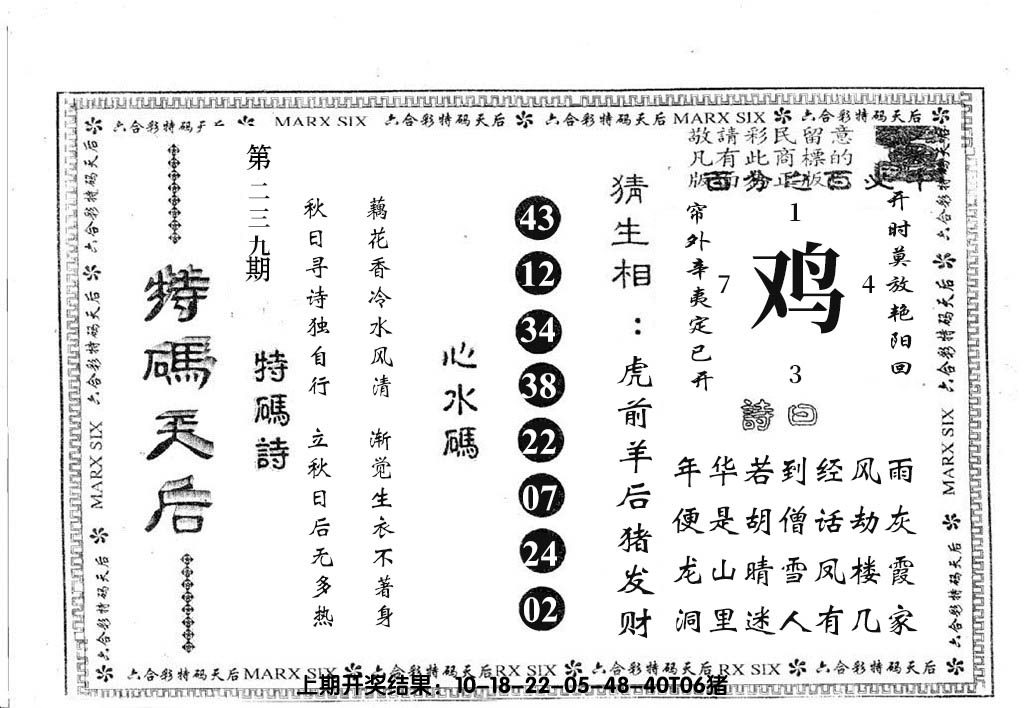 六合彩特码天后 MARX SIX 六合彩特码天后 六合彩特码天后 MARX SIX 六合彩特码天后
敬請彩民留意
凡有此商標的
版面为正版
特碼天后
第二三九期
特碼詩
秋日寻诗独自行 立秋日后无多热
藕花香冷水风清 渐觉生衣不著身
心水碼
43
12
34
38
22
07
24
02
猜生相：虎前羊后猪发财
帘外辛夷定已开
1
7 鸡 4
3
开时莫放艳阳回
詩曰
年华若到经风雨
便是胡僧话劫灰
龙山晴雪凤楼霞
洞里迷人有几家
六合彩特码天后 MARX SIX 六合彩特码天后
六合彩特码天后 MARX SIX 六合彩特码天后
六合彩特码天后 MARX SIX 六合彩特码天后RX SIX 六合彩特码天后 RX SIX 六合彩特码天后
上期开奖结果：10-18-22-05-48-40T06猪